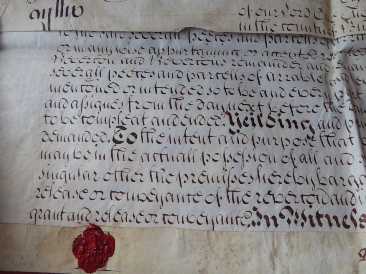 of our Lord One
in the
to the said severall peeces and parcells
or in any wise appurtaining or
Reverton and Revertons remainder
severall peeces and parcells of arrable
mentoned or intended so to be and every
and assignes from the day next before the
to be compleat and ended Yeilding and
demanded To the intent and purpose that
may be in the actuall possession of all and
singular other the premisses hereby barga
release or conveyance of the reverton and
grant and release or conveyance In Witnes